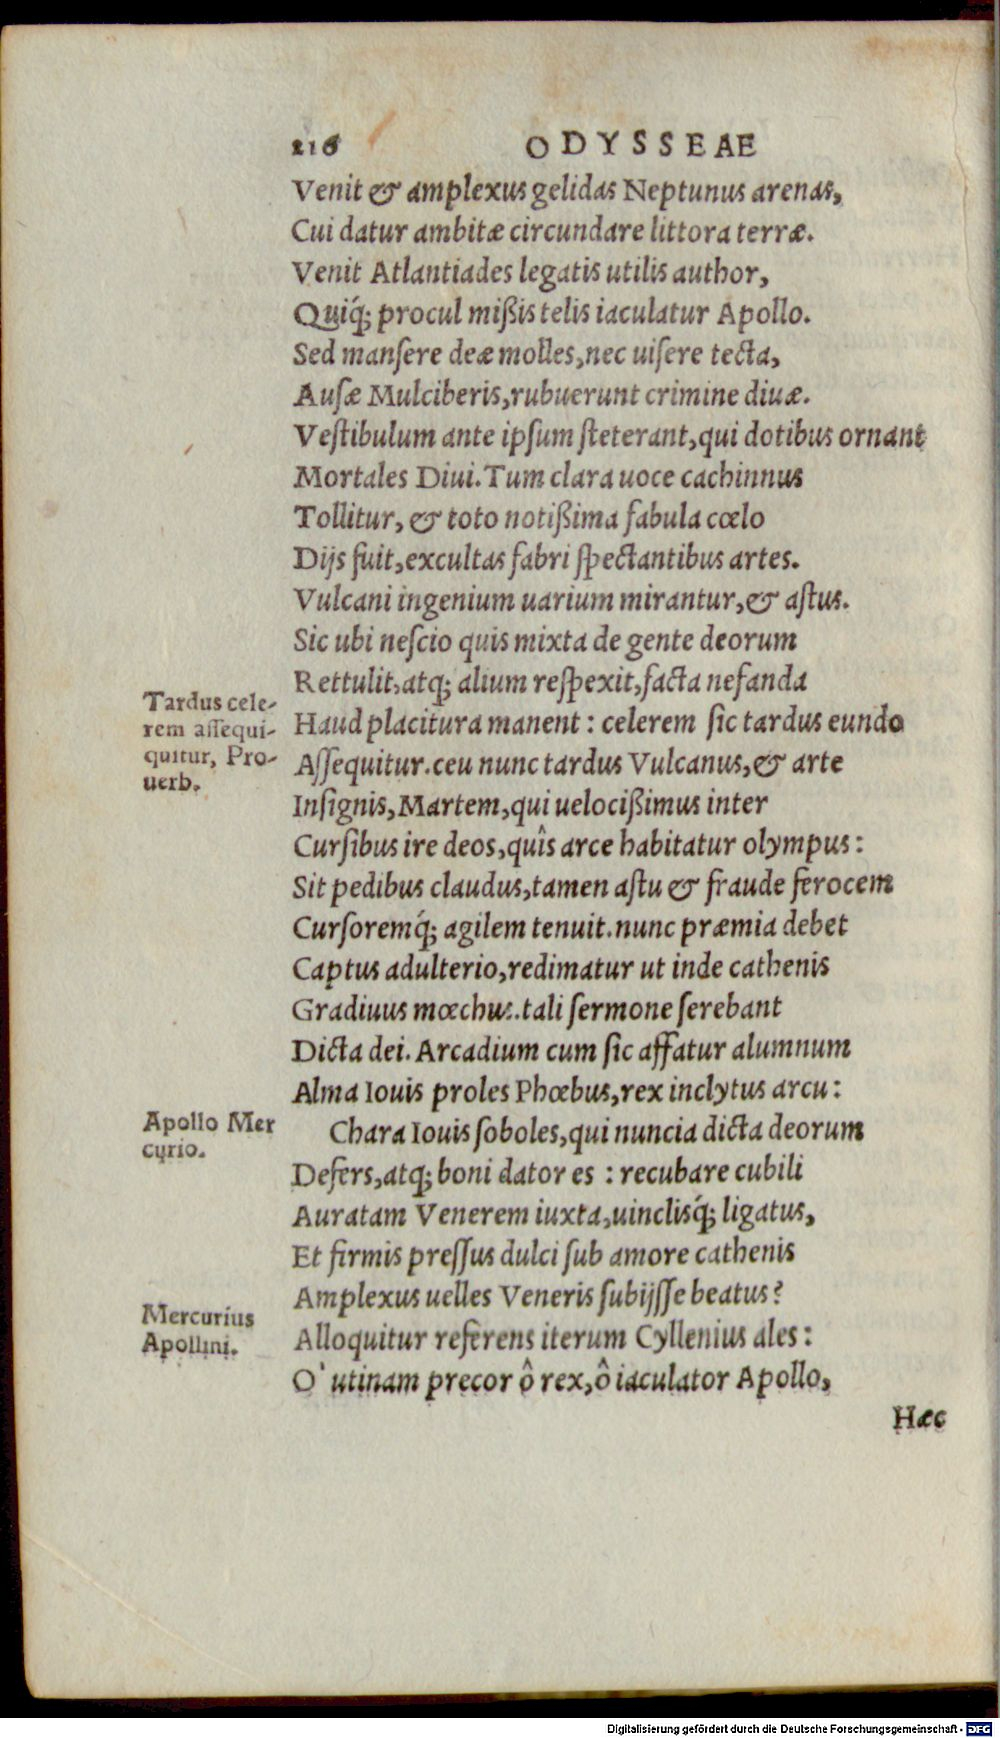 216 ODYSSEAE
Venit & amplexus gelidas Neptunus arenas,
Cui datur ambitæ circundare littora terræ.
Venit Atlantiades legatis utilis author,
Quiq́; procul mißis telis iaculatur Apollo.
Sed manſere deæ molles, nec uiſere tecta,
Auſæ Mulciberis, rubuerunt crimine diuæ.
Veſtibulum ante ipſum ſteterant, qui dotibus ornant
Mortales Diui. Tum clara uoce cachinnus
Tollitur, & toto notißima fabula cœlo
Dijs fuit, excultas fabri ſpectantibus artes.
Vulcani ingenium uarium mirantur, & aſtus.
Sic ubi neſcio quis mixta de gente deorum
Rettulit, atq; alium reſpexit, facta nefanda
Tardus cele-
rem aſſequi-
quitur, Pro-
uerb.
Haud placitura manent : celerem ſic tardus eundo
Aſſequitur. ceu nunc tardus Vulcanus, & arte
Inſignis, Martem, qui uelocißimus inter
Curſibus ire deos, quîs arce habitatur olympus :
Sit pedibus claudus, tamen aſtu & fraude ferocem
Curſoremq́; agilem tenuit. nunc præmia debet
Captus adulterio, redimatur ut inde cathenis
Gradiuus mœchus. tali ſermone ſerebant
Dicta dei. Arcadium cum ſic affatur alumnum
Alma Iouis proles Phœbus, rex inclytus arcu :
Apollo Mer
curio.
Chara Iouis ſoboles, qui nuncia dicta deorum
Defers, atq; boni dator es : recubare cubili
Auratam Venerem iuxta, uinclisq́; ligatus,
Et firmis preſſus dulci ſub amore cathenis
Amplexus uelles Veneris ſubijſſe beatus?
Mercurius
Apollini.
Alloquitur referens iterum Cyllenius ales :
O` utinam precor ô rex, ô iaculator Apollo,
Hæc
Digitalisierung gefördert durch die Deutsche Forschungsgemeinschaft - DFG